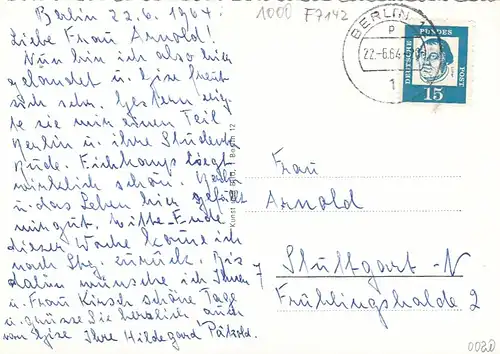 Berlin 22.6.1964.
1000 F7142
Liebe Frau Arnold!
Nun bin ich also hier
gelandet u. Gise freut
sich sehr. Gestern zeig-
te sie mir einen Teil
Berlin u. ihre Studenten
Bude. Eichkamp liegt
wirklich schön. Berlin
u. das Leben hier gefällt
mir gut. Mitte-Ende
dieser Woche komme ich
nach Stg. zurück. Bis
dahin wünsche ich Ihnen
u. Frau Kirsch schöne Tage
u. grüsse Sie herzlich auch
von Gise Ihre Hildegard Pätzold.
BERLIN
22.-6.64
1
DEUTSCHE BUNDESPOST
15
Kunst und Bild, Berlin 12
Frau
Arnold
7 Stuttgart-N
Frühlingshalde 2